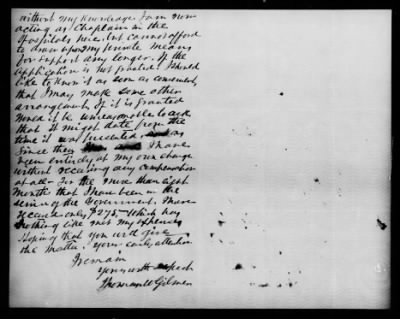 without my knowledge. I am now
acting as Chaplain in the
Hospitals here, but cannot afford
to draw upon my private means
for support any longer. If the
application is not granted I should
like to know it as soon as convenient,
that I may make some other
arrangement. If it is granted
would it be unreasonable to ask
that it might date from the
time it was presented, as
since then I have
been entirely at my own charge
without receiving any compensation
at all. For the more than eight
months that I have been in the
service of the Government I have
received only $275 - which has
nothing like met my expenses
Hoping that you will give
the matter your early attention
I remain
yours with respect
Gilmer